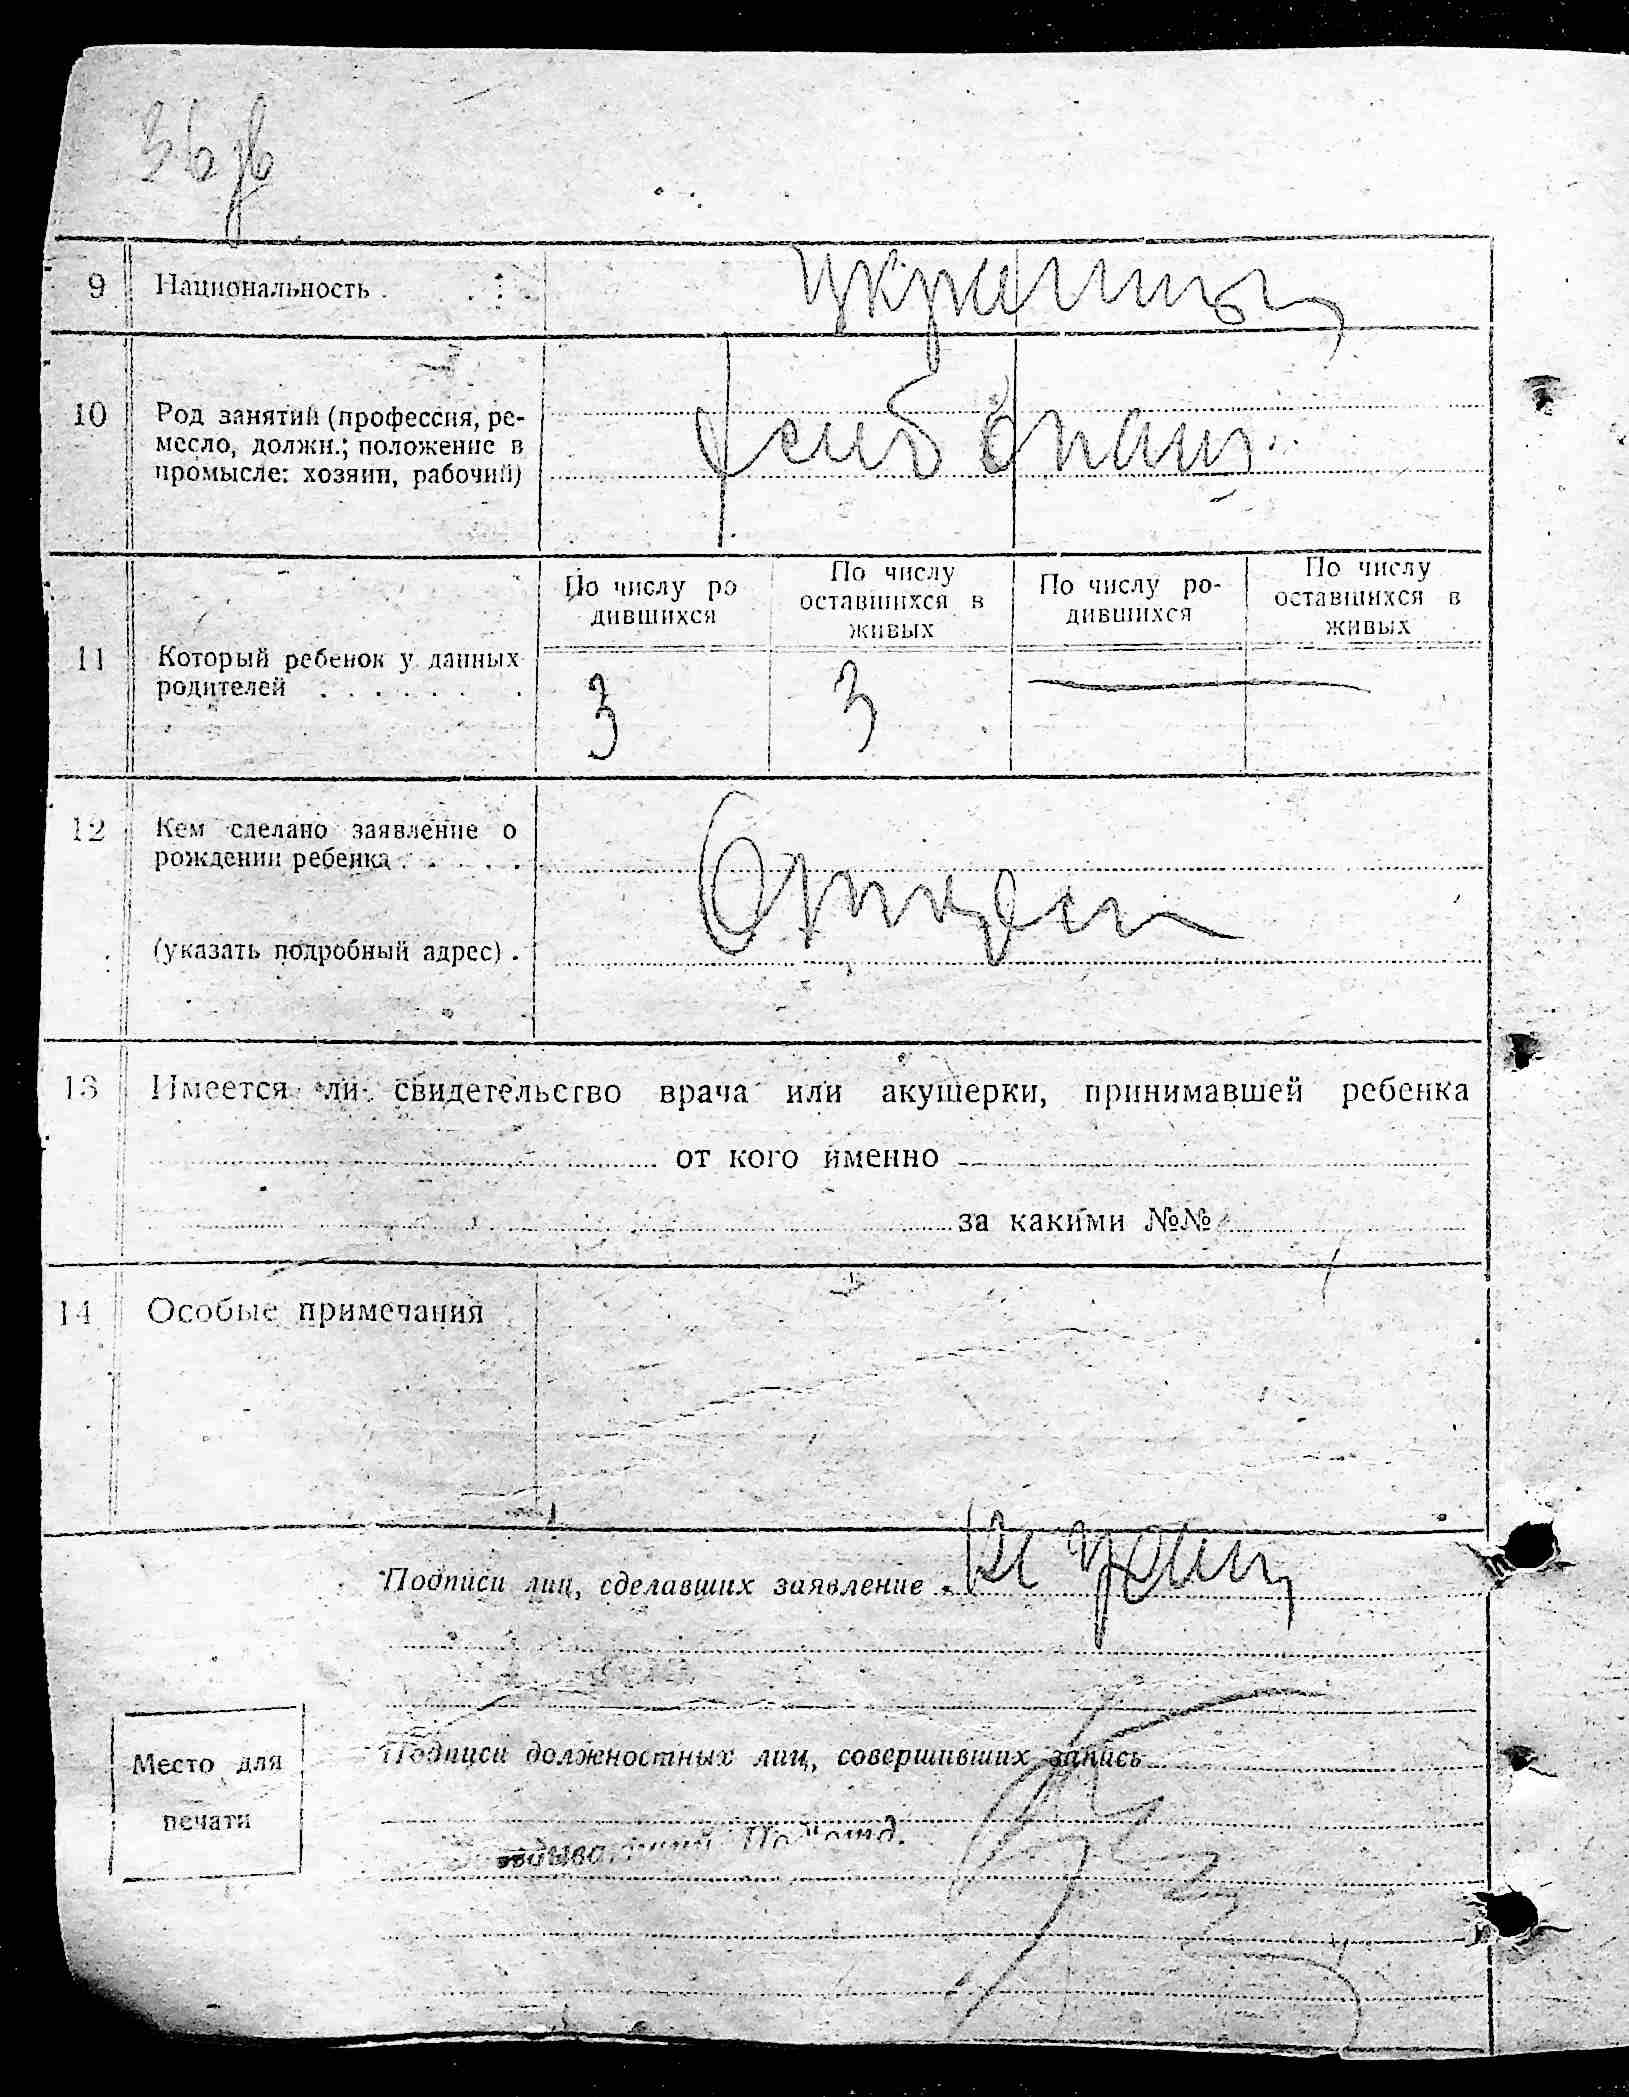 9 Национальность . . . . украинцы
10 Род занятий (профессия, ре-
месло, должн.; положение в
промысле: хозяин, рабочий)
11 Который ребенок у данных
родителей . . . . . . .
По числу ро
дившихся
По числу
оставшихся в
живых
По числу ро-
дившихся
По числу
оставшихся в
живых
3 3
12 Кем сделано заявление о
рождении ребенка . . . . .
(указать подробный адрес) .
Отцом
13 Имеется ли свидетельство врача или акушерки, принимавшей ребенка
от кого именно
за какими №№
14 Особые примечания
Подписи лиц, сделавших заявление .
Подписи должностных лиц, совершивших запись
Место для
печати